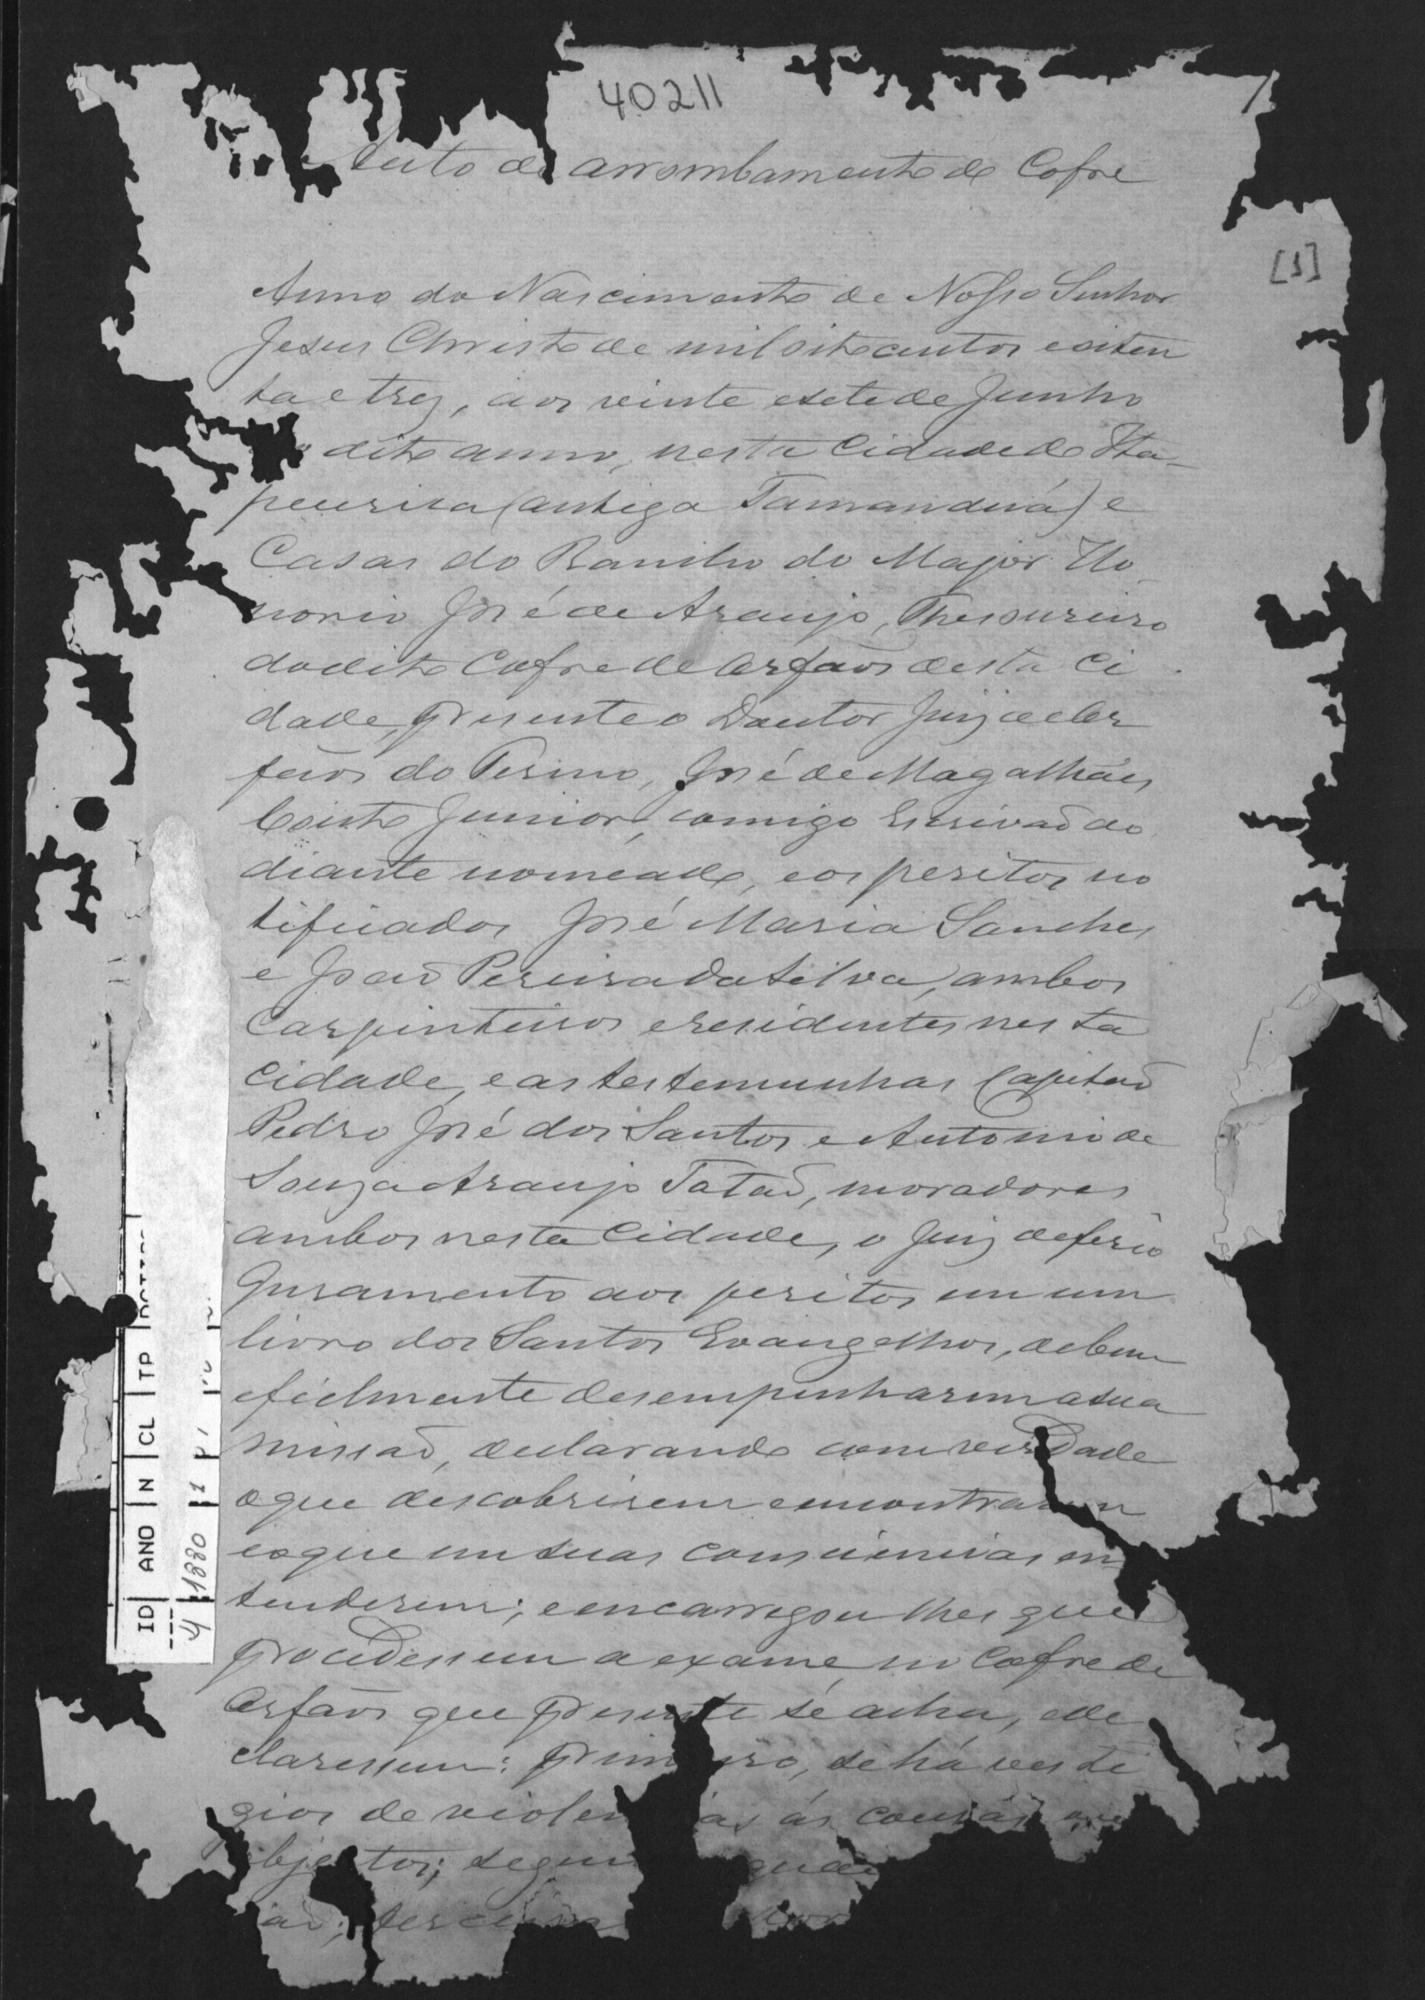 40211
Auto de arrombamento do Cofre
[1]
Anno do Nascimento de Nosso Senhor
Jesus Christo de mil oito centos e oiten
ta e tres, aos vinte e sete de Junho
dito anno, nesta Cidade de Ita-
pecerica (antiga Tamanduá) e
Casas do Rancho do Major Ho-
norio José de Araujo, Thesoureiro
do dito Cofre de Orfãos desta Ci
dade, presente o Doutor Juiz de Or
fãos do Termo, José de Magalhães
Couto Junior, comigo Escrivão ao
diante nomeado, e os peritos no
tificados José Maria Sanches
e João Pereira da Silva, ambos
Carpinteiros e residentes nesta
Cidade, e as testemunhas Capitão
Pedro José dos Santos e Antonio de
Souza Araujo Tatão, moradores
ambos nesta Cidade, o Juiz deferio
Juramento aos peritos em um
livro dos Santos Evangelhos, de bem
e fielmente desempenharem a sua
missão, declarando com verdade
o que descobrirem e encontrarem
e o que em suas consciencias en
tenderem; e encarregou lhes que
procedessem a exame no Cofre de
Orfãos que presente se acha, e de
claressem: primeiro, se há vesti
gios de violencias ás cousas ou
objectos; segun
ão; terceiro
ID ANO N CL TP
4 1880 1